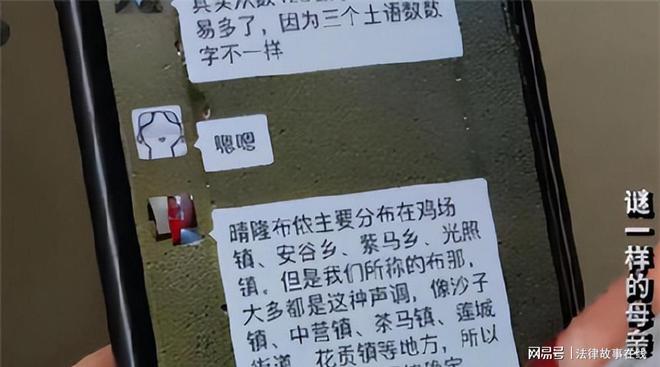 其实从数
易多了，因为三个土语数数
字不一样
嗯嗯
晴隆布依主要分布在鸡场
镇、安谷乡、紫马乡、光照
镇。但是我们所称的布那，
大多都是这种声调，像沙子
镇、中营镇、茶马镇、莲城
街道、花贡镇等地方，所以
谜一样的母亲
网易号 | 法律故事在线